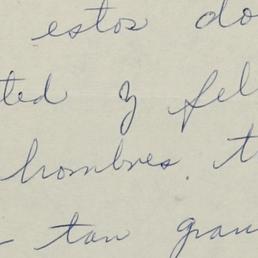 estos do
ted y fel
hombres. t
- tan gran